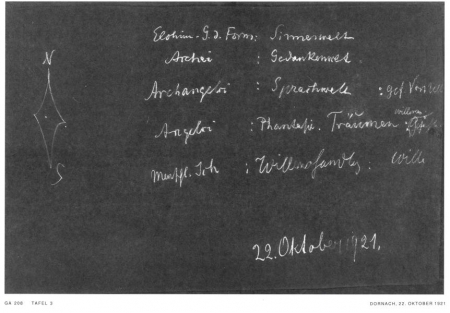 N
Elohim - G. d. Form : Sinneswelt
Archai : Gedankenwelt.
Archangeloi : Sprachwelt : gef. Vorst
Angeloi : Phantasie. Träumen :
Menschl. Ich : Willenshandlg. : Wille
S
22. Oktober 1921.
GA 208 TAFEL 3
DORNACH, 22. OKTOBER 1921